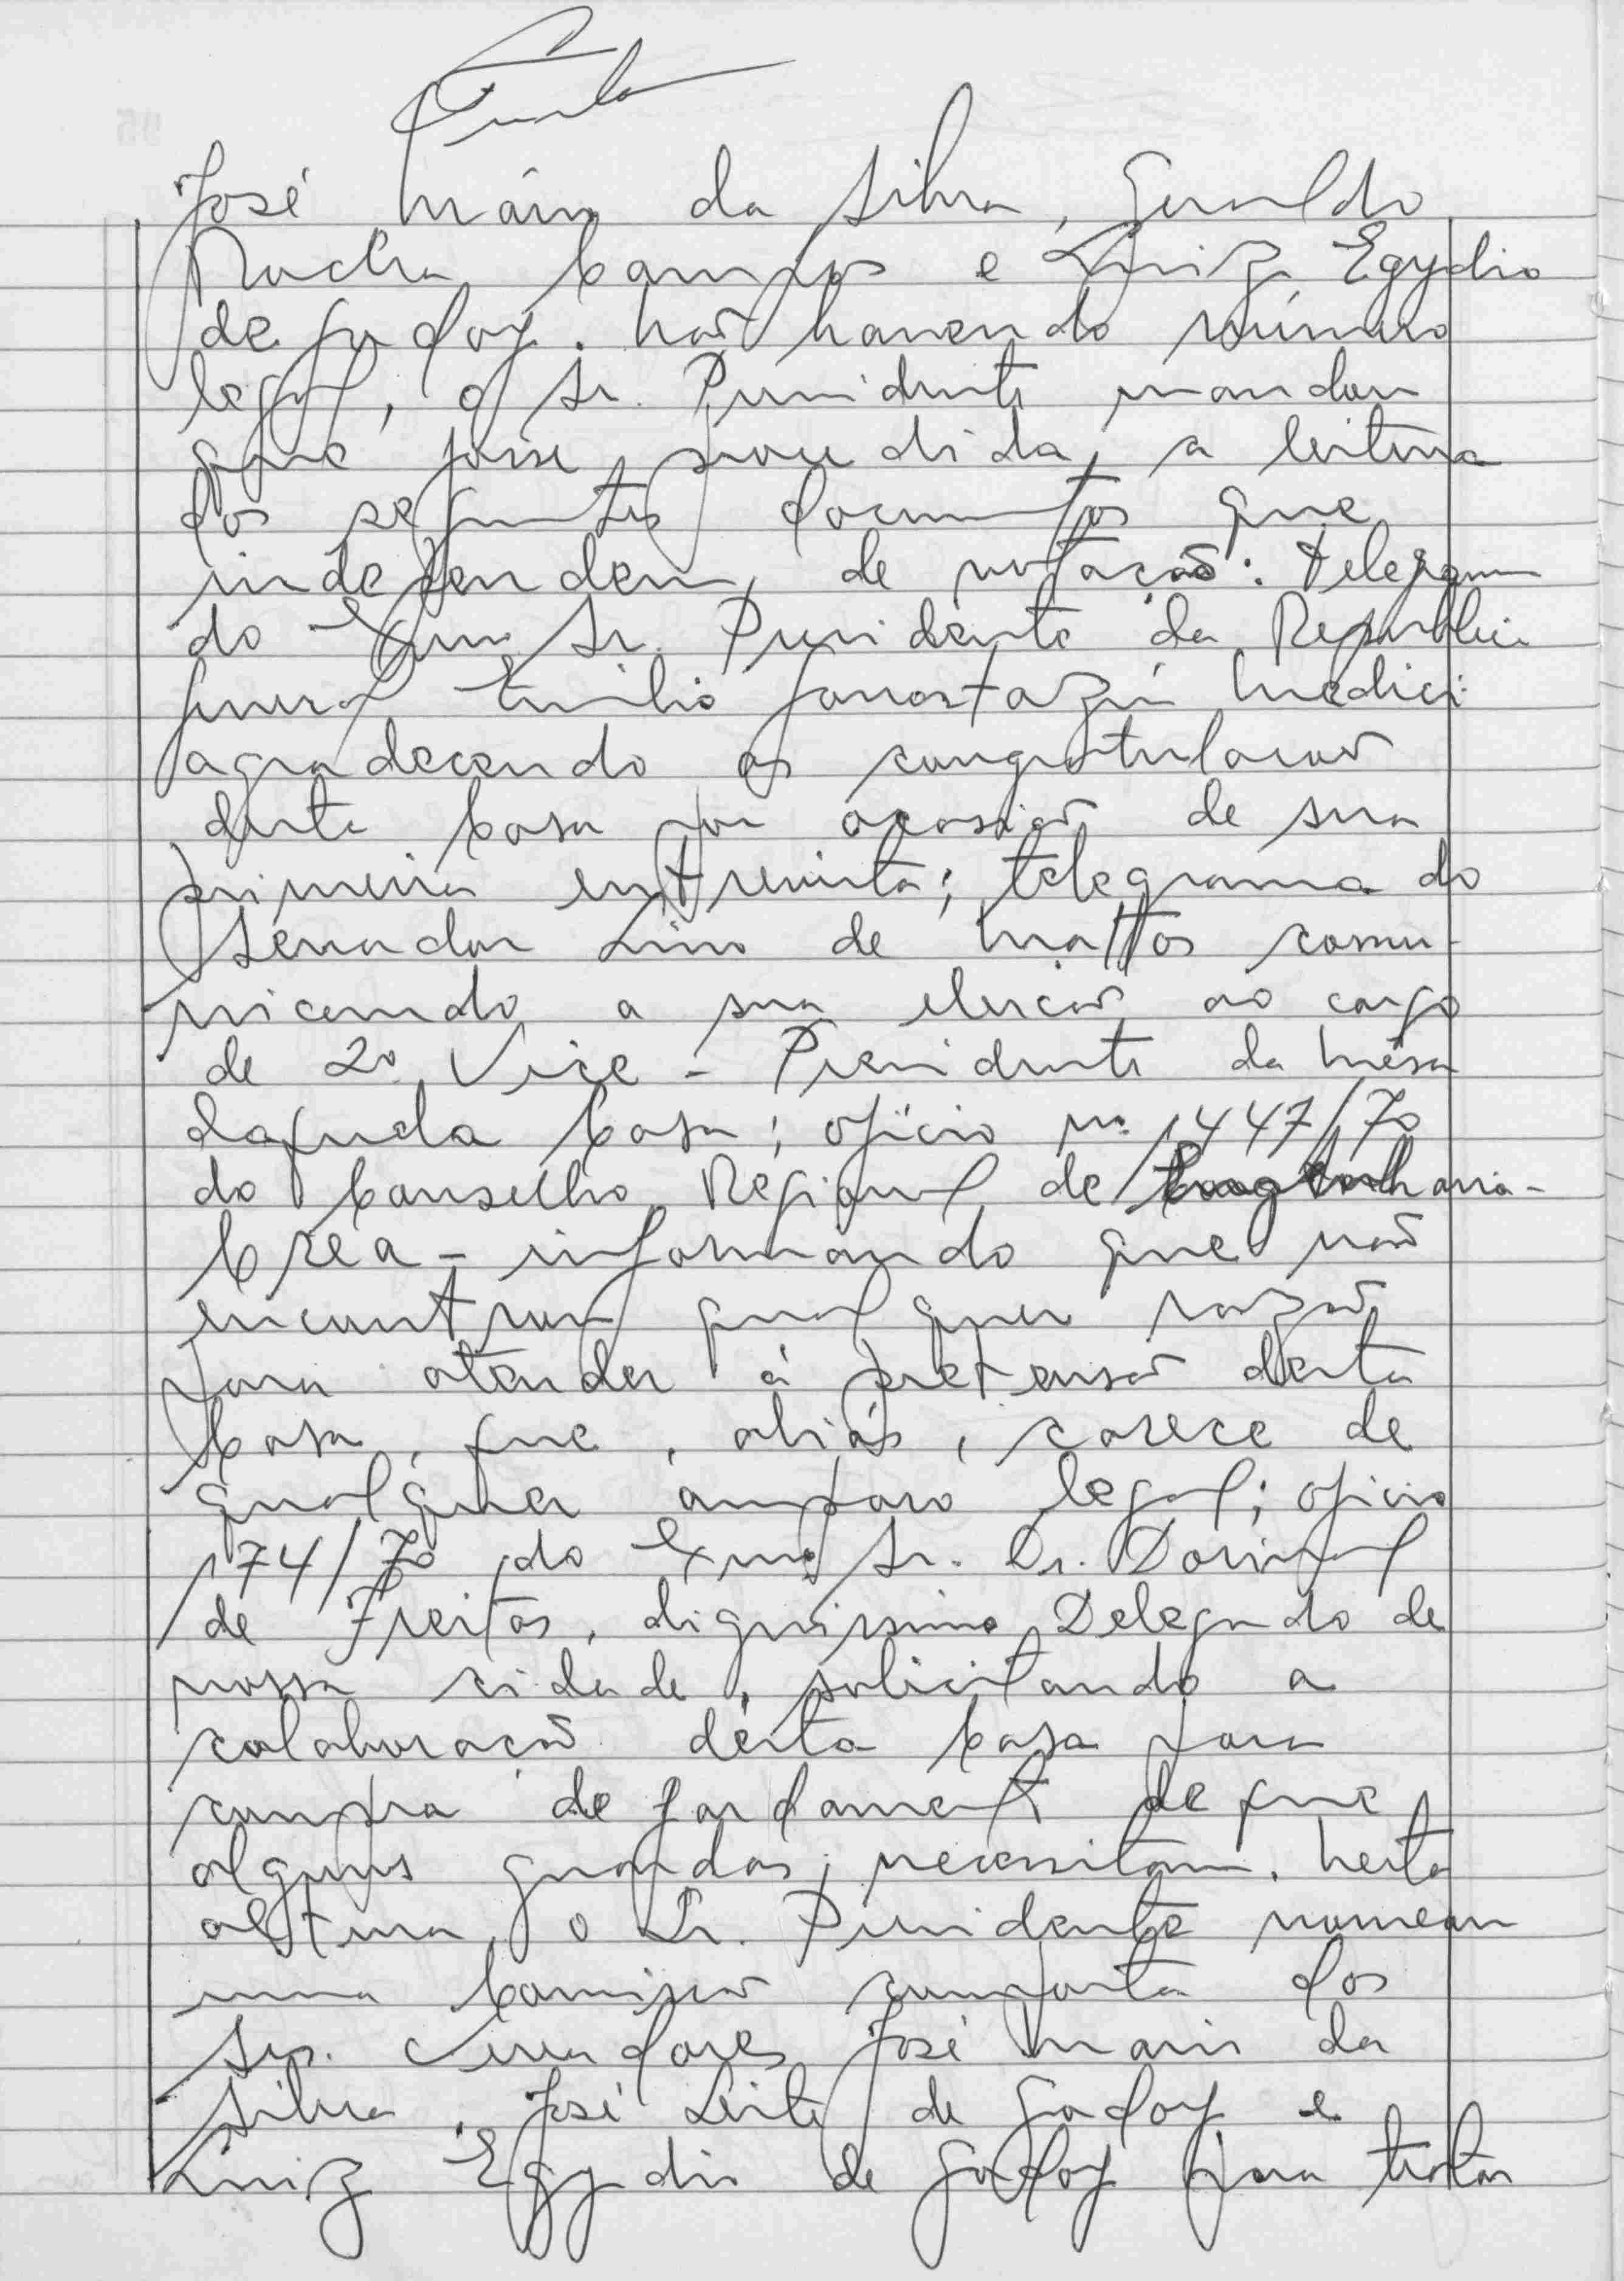 José Mário da Silva, Geraldo
Rocha Campos e Luiz Egydio
de Godoy. Não havendo número
legal, o Sr. Presidente mandou
que fosse procedida a leitura
dos seguintes documentos que
independem de votação: telegrama
do Exmo. Sr. Presidente da República
general Emílio Garrastazú Médici
agradecendo as congratulações
desta Casa por ocasião de sua
primeira entrevista; telegrama do
Senador Lino de Mattos comu-
nicando a sua eleição ao cargo
de 2º Vice-Presidente da Mesa
daquela Casa; ofício nº 1447/70
do Conselho Regional de Engenharia-
Crea - informando que não
encontrou qualquer razão
para atender à pretensão desta
Casa, que, aliás, carece de
qualquer amparo legal; ofício
174/70 do Exmo Sr. Dr. Dorival
de Freitas, digníssimo Delegado de
nossa cidade, solicitando a
colaboração désta Casa para
compra de fardament de que
alguns guardas necessitam. Nesta
altura, o Sr. Presidente nomeou
uma Comissão composta dos
Srs. Vereadores José Mario da
Silva, José Leite de Godoy e
Luiz Egydio de Godoy para tratar